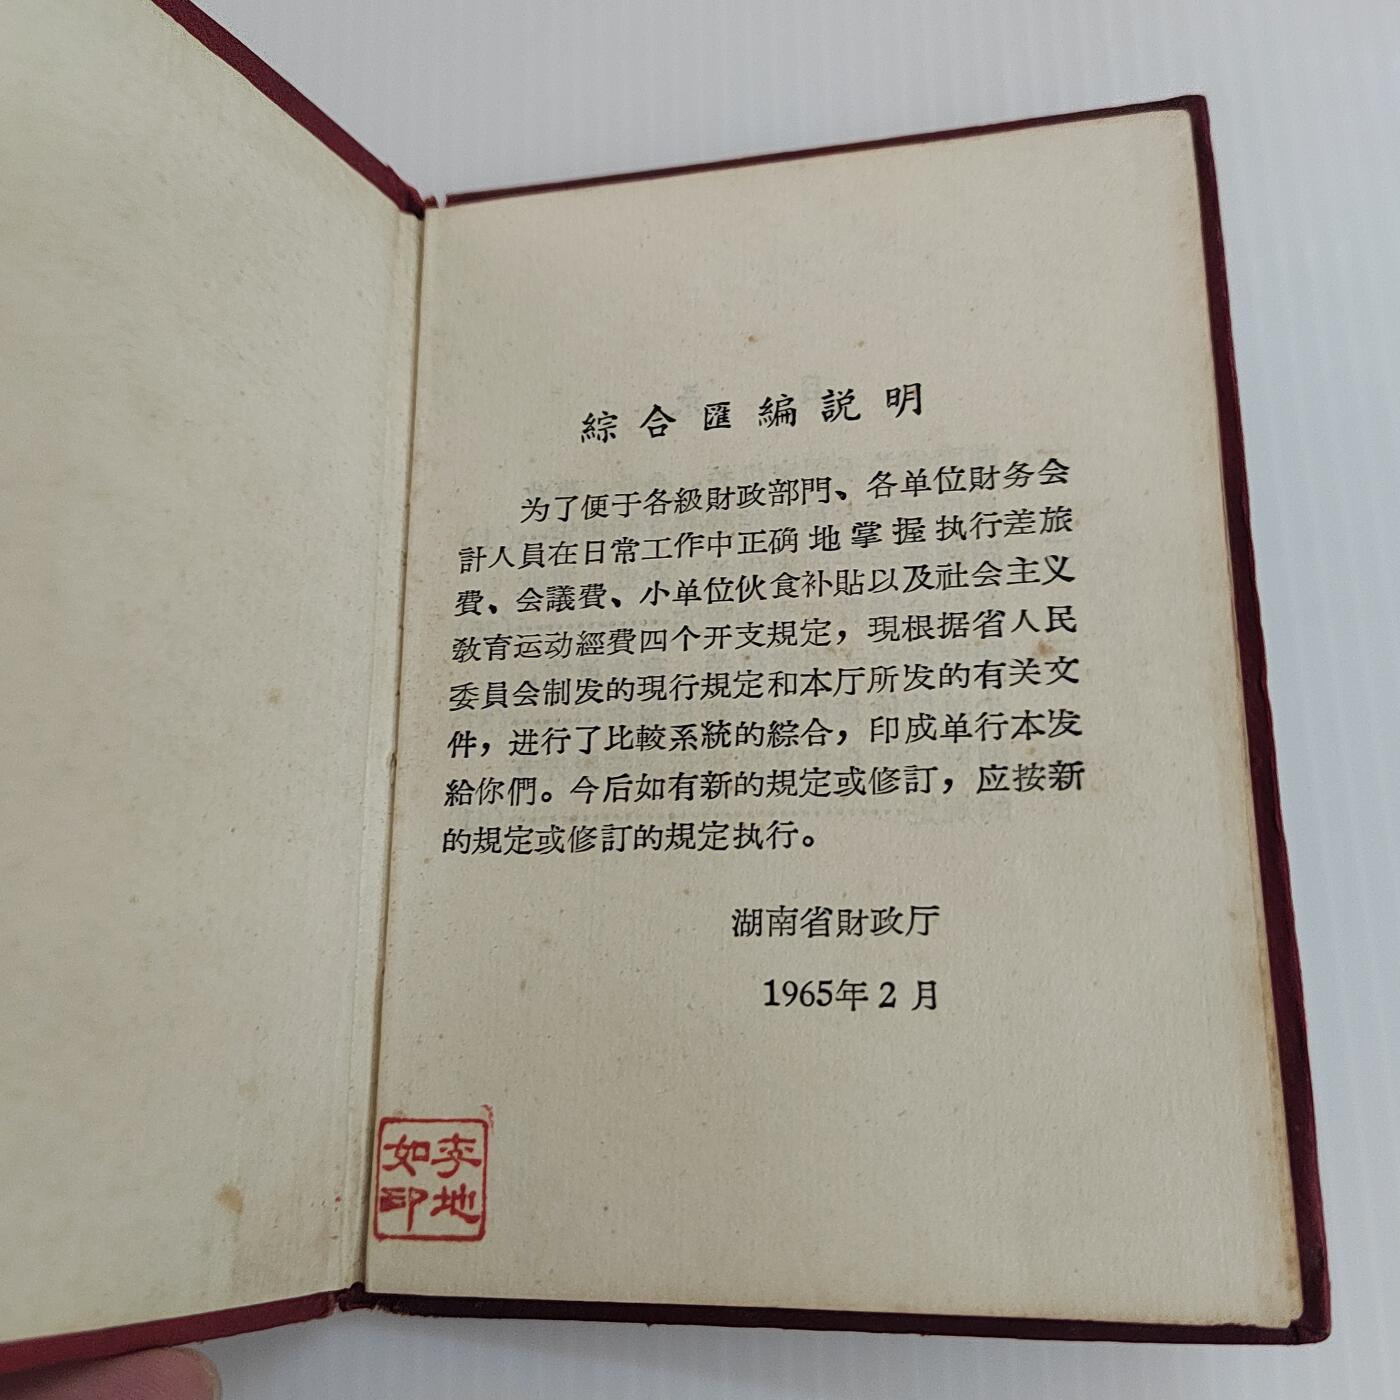 綜合匯編説明
为了便于各級財政部門、各单位財务会
計人員在日常工作中正确地掌握执行差旅
費、会議費、小单位伙食补貼以及社会主义
敎育运动經費四个开支規定，現根据省人民
委員会制发的現行規定和本厅所发的有关文
件，进行了比較系統的綜合，印成单行本发
給你們。今后如有新的規定或修訂，应按新
的規定或修訂的規定执行。
湖南省財政厅
1965年2月
李地
如印